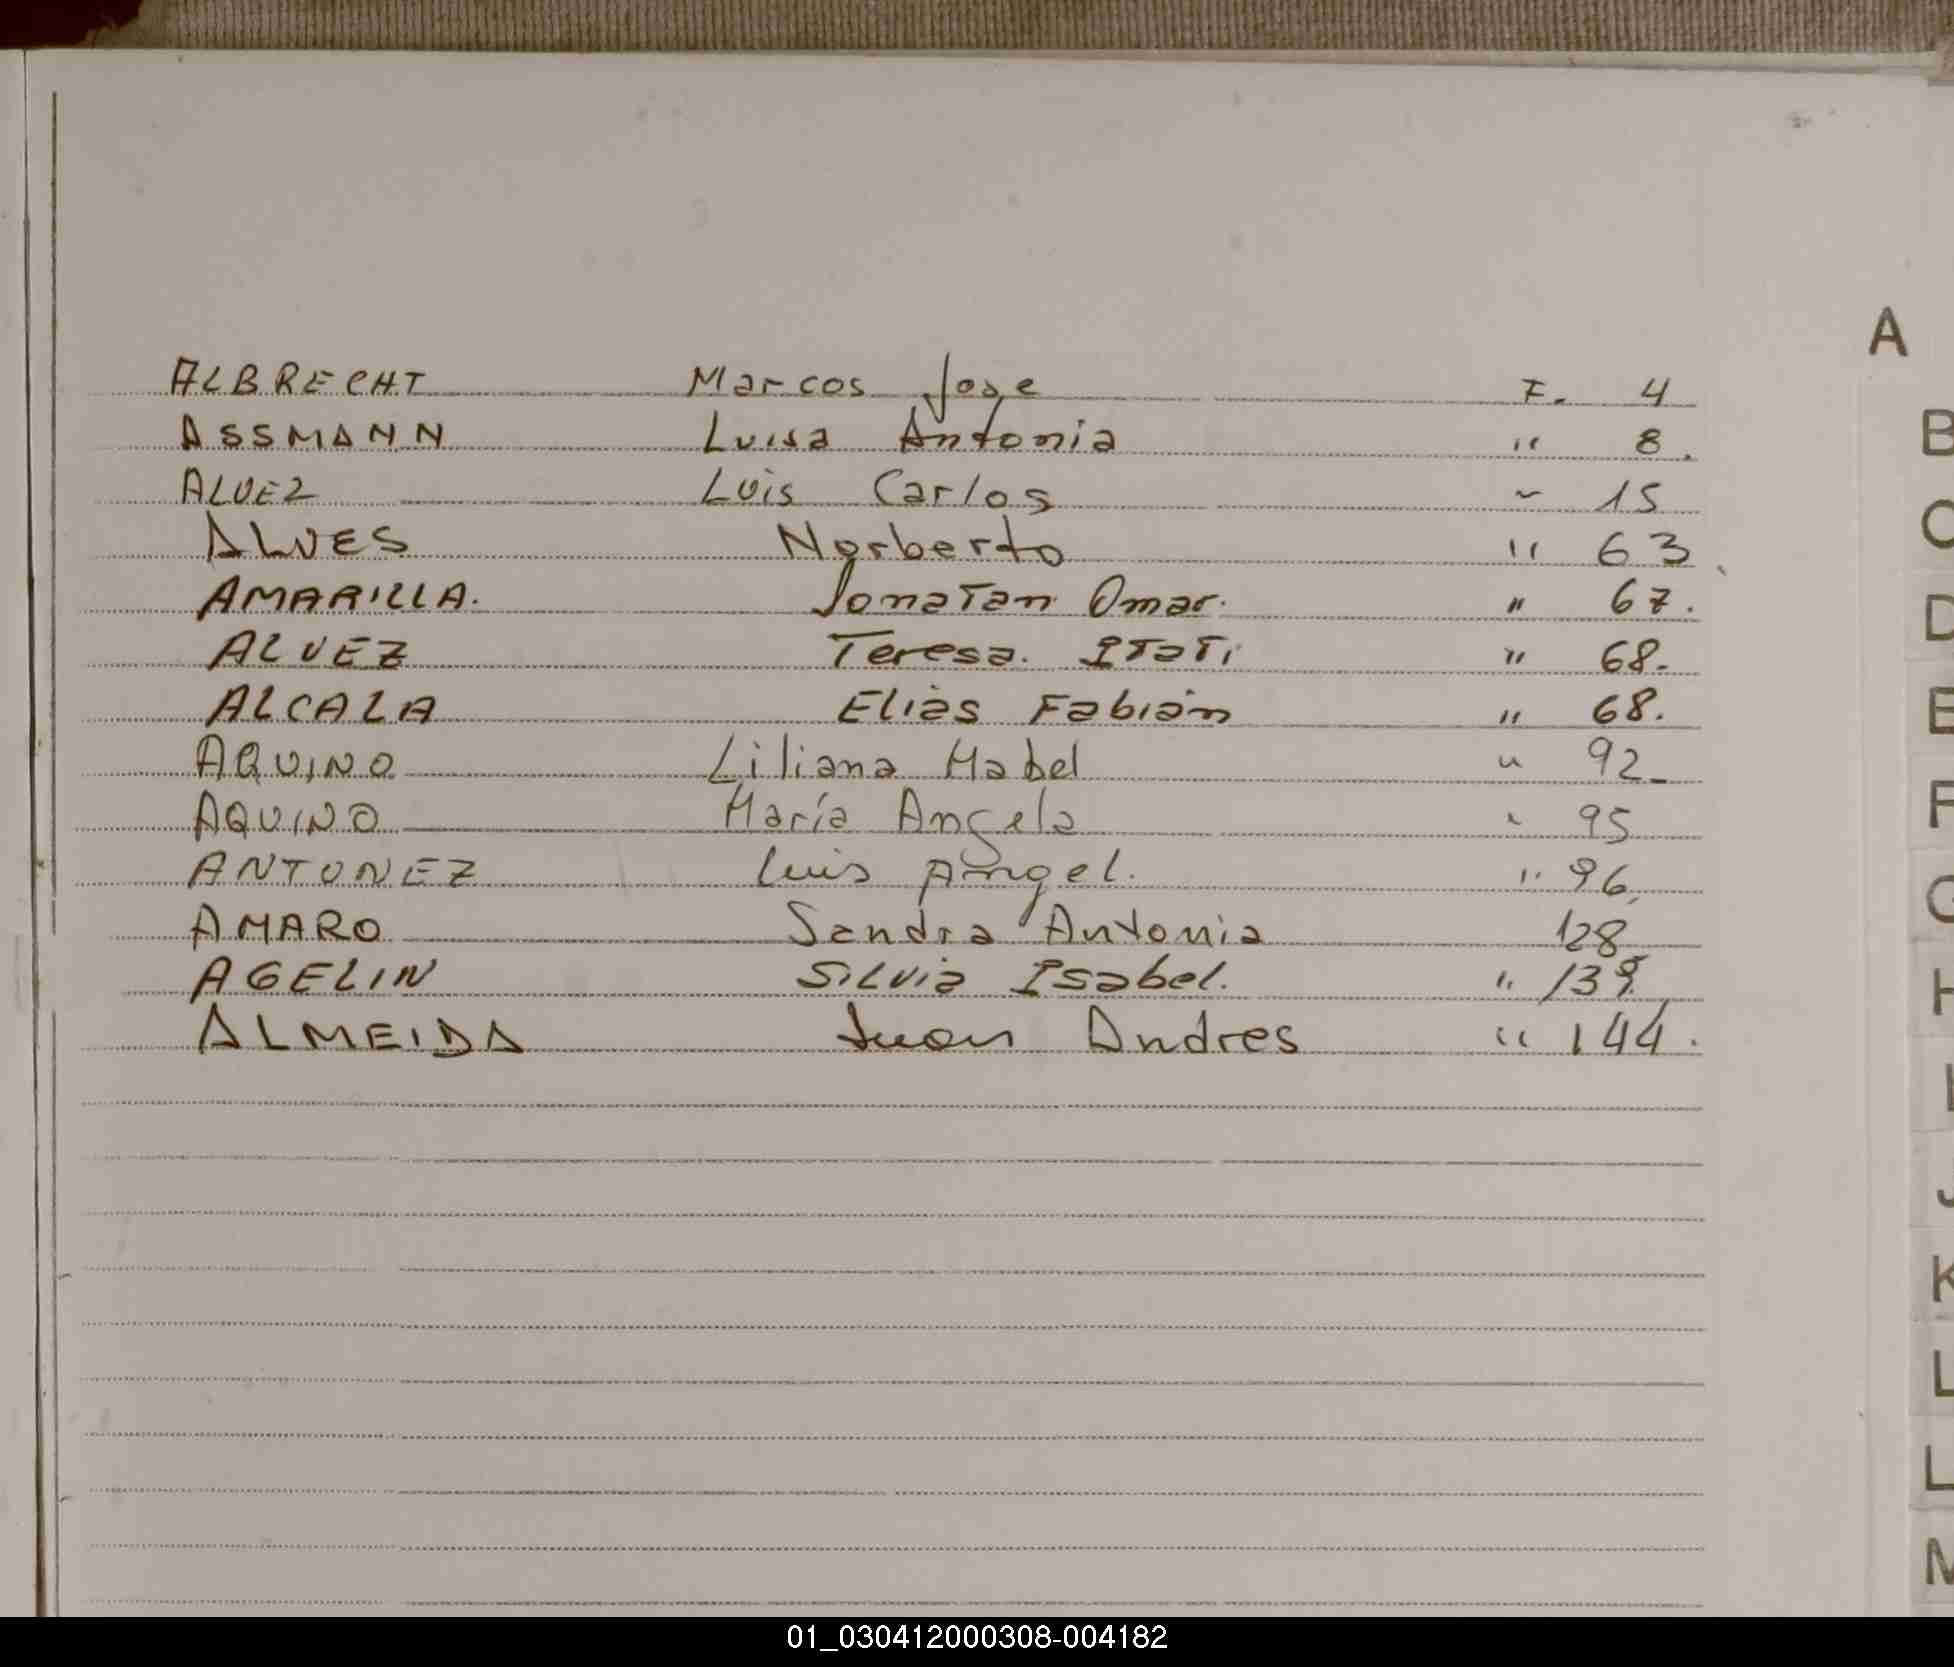 A
ALBRECHT Marcos Jose F. 4
ASSMANN Luisa Antonia " 8.
ALVEZ Luis Carlos " 15
ALVES Norberto " 63
AMARILLA. Jonatan Omar. " 67.
ALVEZ Teresa. Itati " 68.
ALCALA Elias Fabián " 68.
AQUINO Liliana Mabel " 92_
AQUINO María Angela " 95
ANTUNEZ Luis Angel. " 96
AMARO Sandra Antonia 128
AGELIN Silvia Isabel. " 139
ALMEIDA Juan Andres " 144.
B
C
D
E
F
G
H
I
J
K
L
L
M
01_030412000308-004182